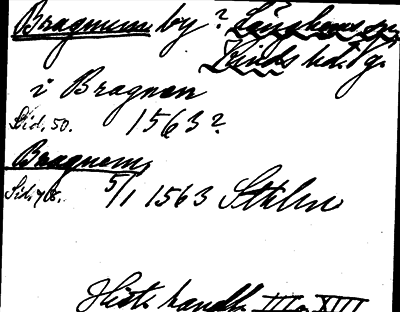 Bragnum by? Länghems sn,
Kinds hd. Vg.
i Bragnan
Sid. 50. 1563?
Bragnems
Sid. 768. 5/1 1563 Sthlm
Hist. handl. III o XIII